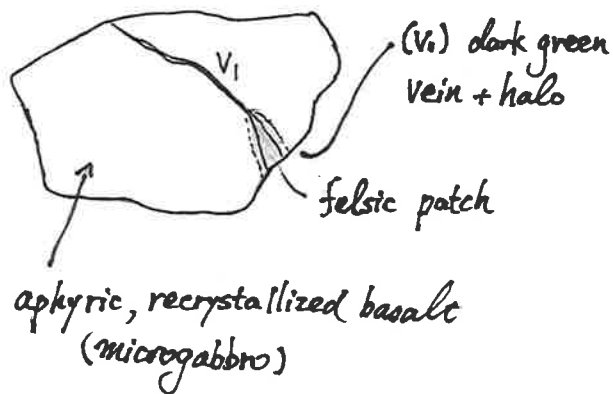 V1
(V1) dark green
vein + halo
felsic patch
aphyric, recrystallized basalt
(microgabbro)